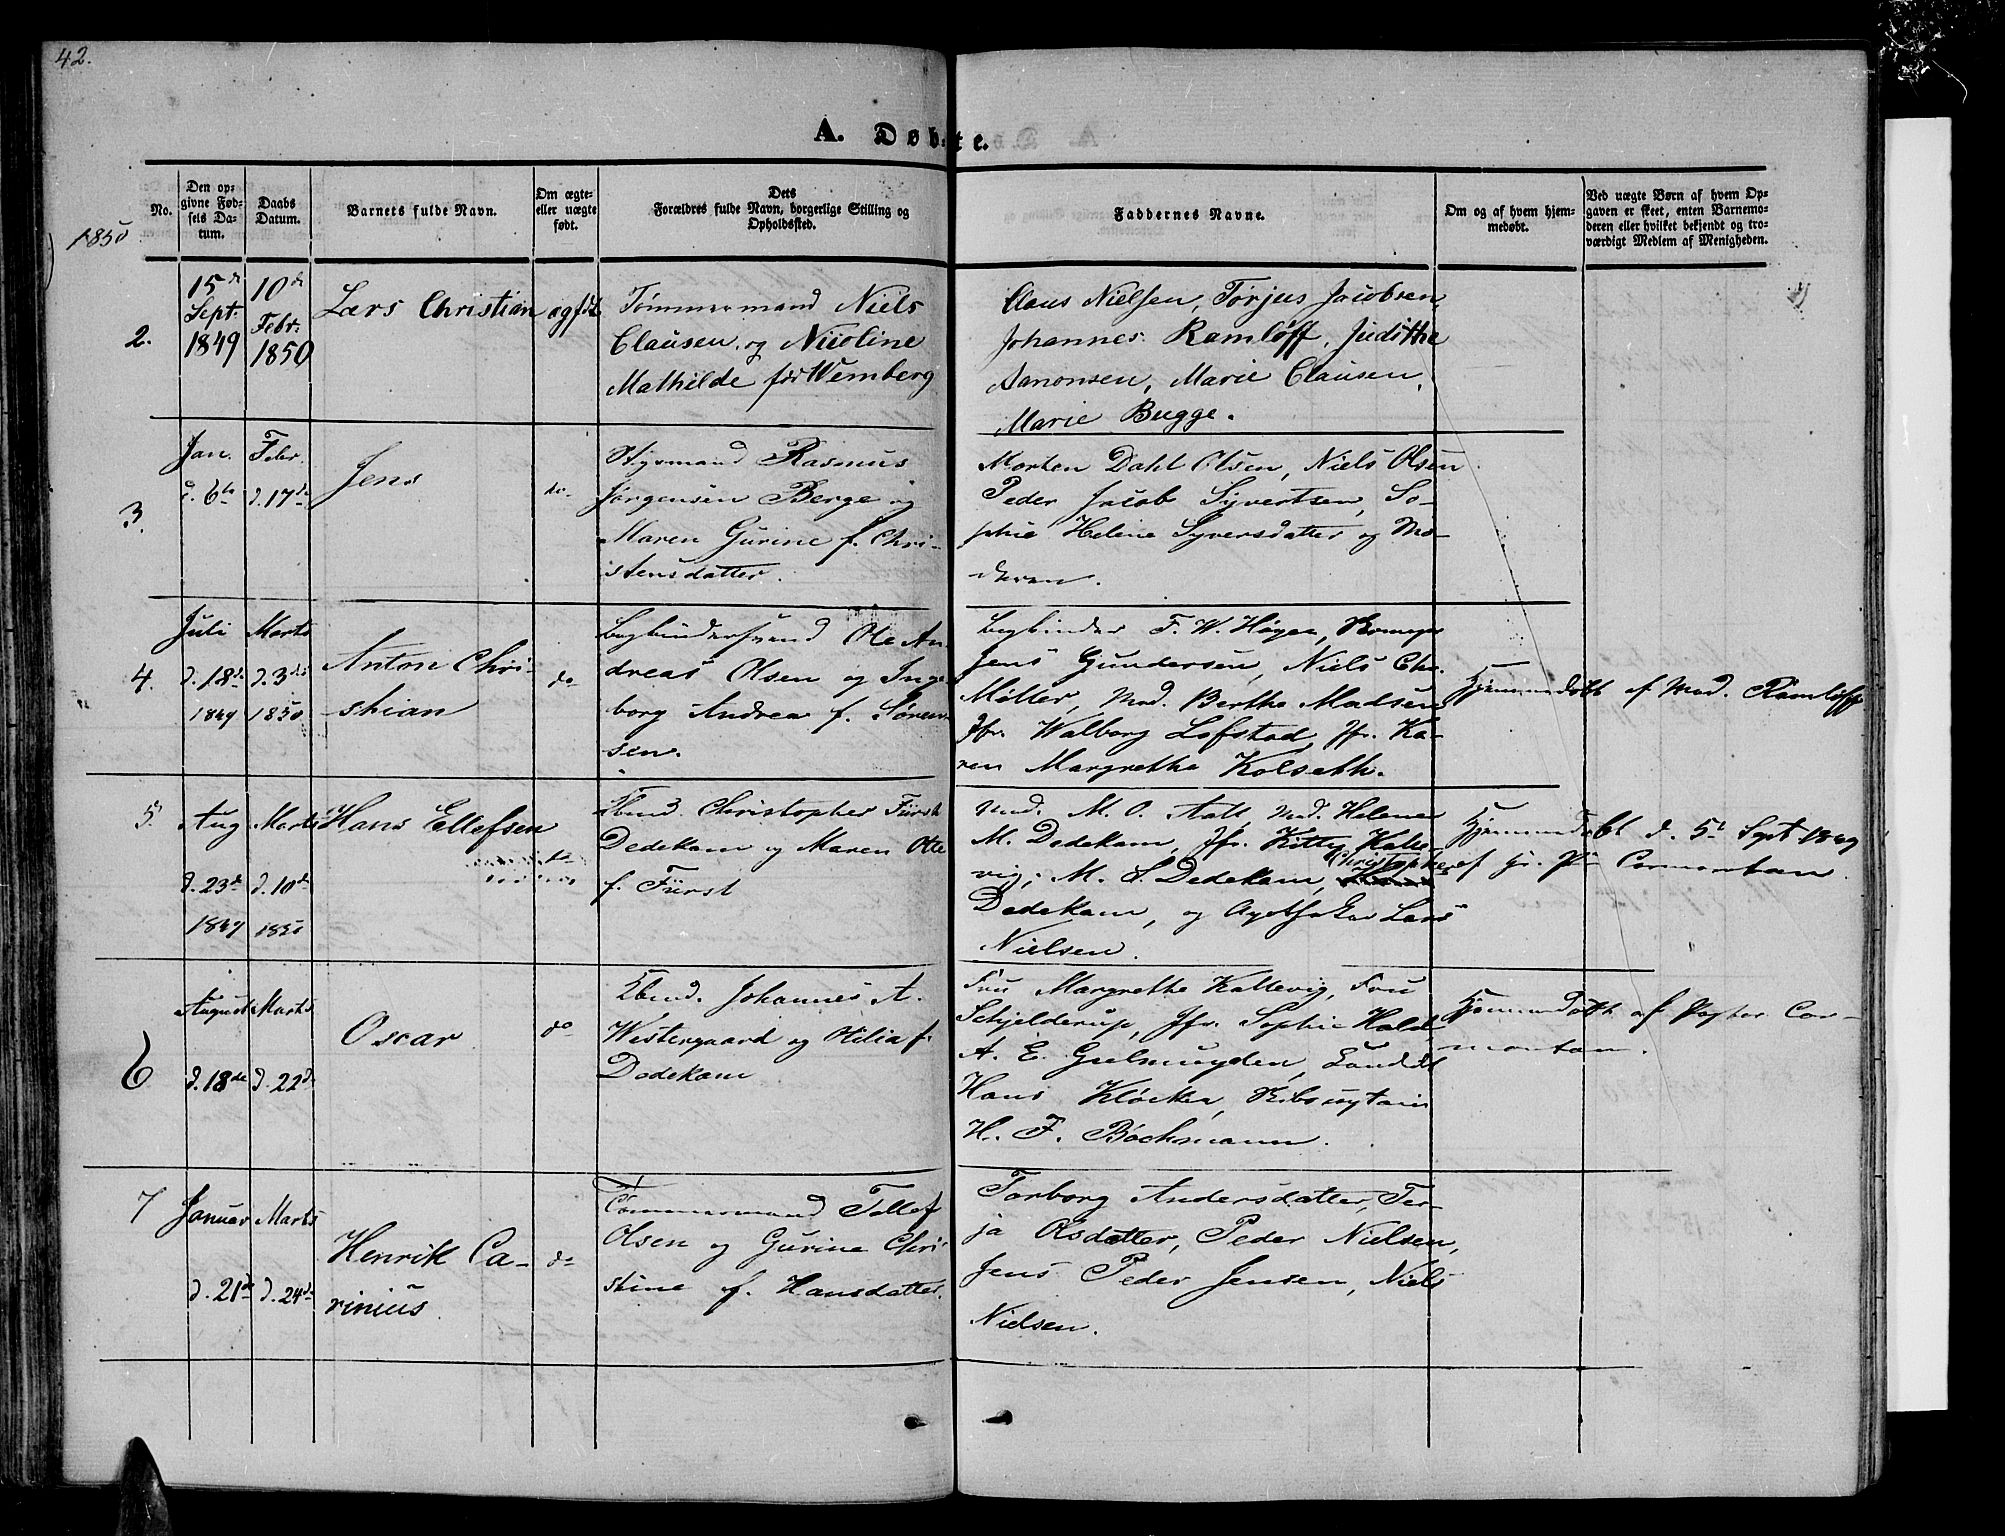 42.
A. Døbte.
1850
No.
Den op-
givne Fød-
sels Da-
tum.
Daabs
Datum.
Barnets fulde Navn.
Om ægte-
eller uægte
født.
Dets
Forældres fulde Navn, borgerlige Stilling og
Opholdssted.
Faddernes Navne.
Om og af hvem hjem-
medøbt.
Ved uægte Børn af hvem Op-
gaven er skeet, enten Barnemo-
deren eller hvilket bekjendt og tro-
værdigt Medlem af Menigheden.
2.
15de
Sept.
1849
10de
Febr.
1850
Lars Christian
ægfdt
Tømmermand Niels
Clausen og Nicoline
Mathilde født Wemberg
Claus Nielsen, Torjus Jacobsen,
Johannes Ramløff, Judithe
Aanonsen, Marie Clausen,
Marie Bugge.
3.
Jan.
d. 6te
Febr.
d. 17de
Jens
do.
Styrmand Rasmus
Jørgensen Berge og
Maren Gurine f. Chri-
stensdatter.
Morten Dahl Olsen, Niels Olsen
Peder Jacob Syvertsen, So-
phie Helene Syversdatter og Mo-
deren.
4.
Juli
d. 18de
1849
Marts
d. 3die
1850
Anton Chri-
stian
do
Bogbindersvend Ole An-
dreas Olsen og Inge-
borg Andrea f. Søren-
sen.
Bogbinder F. W. Høyer,
Jens Gundersen, Niels Chr.
Møller, Mad. Berthe Madsen
Jfr. Walborg Lofstad, Jfr. Ka-
ren Margrethe Kolseth.
Hjemmedøbt af Mad. Ramløff
5.
Aug
d. 23de
1849
Marts
d. 10de
1850
Hans Ellefsen
Kbmd. Christopher Fürst
Dedekam og Maren Otte
f. Fürst
Mad. M. O. Aall, Mad. Helene
M. Dedekam, Jfr. Kitty Kalle-
vig, M. S. Dedekam, Christopher
Dedekam, og Apotheker Lars
Nielsen.
Hjemmedøbt d. 5te Sept 1849
af Cormontan.
6
August
d. 18de
Marts
d. 22de
Oscar
do
Kbmd. Johannes A.
Westergaard og Hilia f.
Dedekam
Fru Margrethe Kallevig, Fru
Schjelderup, Jfr. Sophie Hald,
A. E. Gulmuyden,
Hans Kløcker, Skibscaptain
H. F. Bochmann.
Hjemmedøbt af Pastor Cor-
montan.
7
Januar
d. 21de
Marts
d. 24de
Henrik Ca-
rinius.
do
Tømmermand Tellef
Olsen og Gurine Chri-
stine f. Hansdatter.
Torborg Andersdatter, Ter-
ja Olsdatter, Peder Nielsen,
Jens Peder Jensen, Niels
Nielsen.